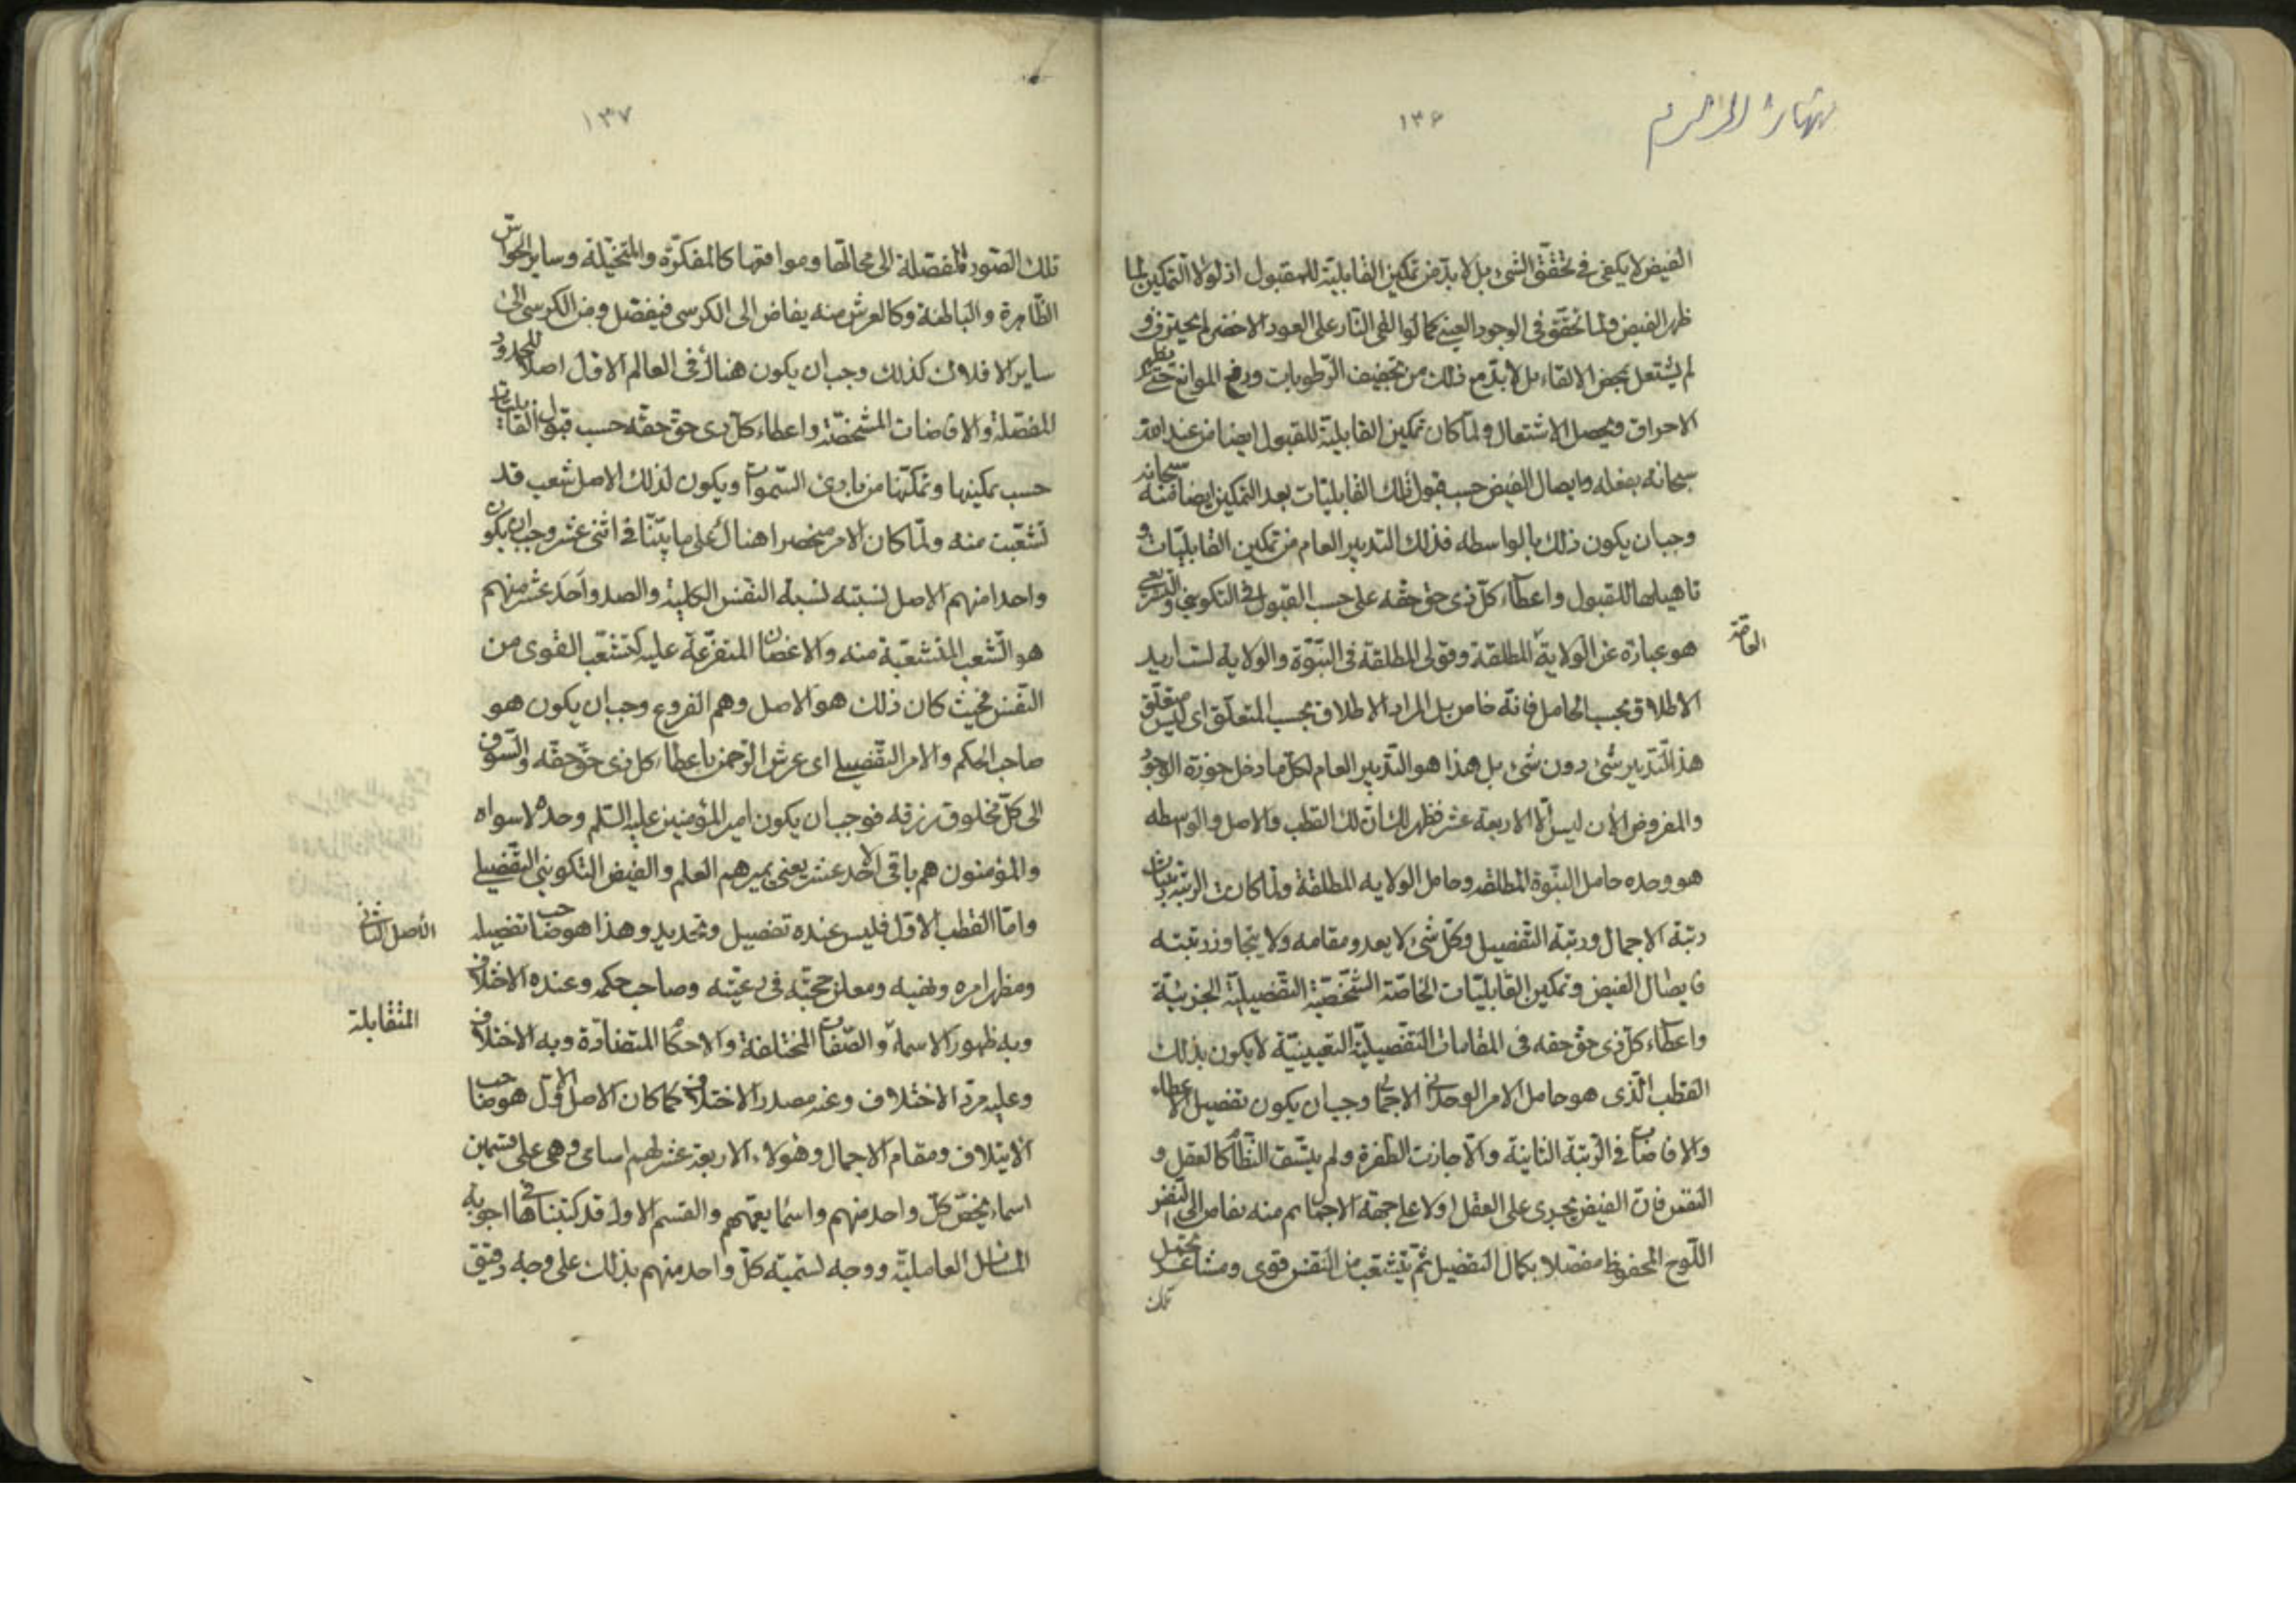 ١٣۶
الفيض لا يكفى فى تحقّق الشىء بل لا بدّ من تمكين القابليّة للمقبول اذ لولا التمكين لما
ظهر الفيض ولما تحقّق فى الوجود العينى كما لو القى النّار على العود الاخضر لم يحترق و
لم يشتعل بمحض الالقاء بل لا بدّ مع ذلك من تجفيف الرّطوبات ورفع الموانع حتّى يظهر
الاحراق ويحصل الاشتعال ولمّا كان تمكين القابليّة للقبول ايضا من عند اللّه
سبحانه بفعله وايصال الفيض حسب قبول تلك القابليّات بعد التمكين ايضا منه سبحانه
وجب ان يكون ذلك بالواسطه فذلك التدبير العام من تمكين القابليّات و
تاهيلها للقبول واعطاء كلّ ذى حقّ حقّه على حسب القبول فى التكوينى والتشريعى
هو عبارة عن الولاية المطلقة وقولى المطلقة فى النبّوة والولاية لست اريد
العامّة
الاطلاق بحسب الحامل فانّه خاص بل المراد الاطلاق بحسب المتعلّق اى ليس متعلّق
هذا التّدبير شىء دون شىء بل هذا هو التدبير العام لكلّ ما دخل حوزة الوجود
والمفروض الآن ليس الّا الاربعة عشر فظهر لك انّ ذلك القطب والاصل والواسطه
هو وحده حامل النبّوة المطلقه وحامل الولايه المطلقة ولمّا كانت الرتبة رتبتان
رتبة الاجمال ورتبة التّفصيل وكلّ شىء لا يعدو مقامه ولا يتجاوز رتبته
فايصال الفيض وتمكين القابليّات الخاصّة الشّخصيّة التفصيليّة الجزئيّة
واعطاء كلّ ذى حقّ حقه فى المقامات التفصيليّة التعيينيّة لا يكون بذلك
القطب الّذى هو حامل الامر الوحدانى الاجمالى وجب ان يكون تفصيل الاعطاء
والافاضات فى الرّتبة الثانية والّا جازت الطّفرة ولم يتّسق النّظام كالعقل و
النّفس فانّ الفيض يجرى على العقل اولا على جهة الاجمال ثم منه يفاض الى النّفس
اللّوح المحفوظ مفصّلا بكمال التفصيل ثم يتشعّب من النّفس قوى ومشاعر تحمل
تلك
١٣٧
تلك الصّور المفصّلة الى محالّها ومواقعها كالمفكّرة والمتخيّلة وساير الحواسّ
الظّاهرة والباطنة وكالعرش منه يفاض الى الكرسى فيفصّل ومن الكرسى الى
ساير الافلاك كذلك وجب ان يكون هناك فى العالم الاوّل اصلا للحدود
المفصّلة والافاضات المشخّصة واعطاء كلّ ذى حقّ حقّه حسب قبول القابليّات
حسب تمكينها وتمكنّها من بارئ السّموات ويكون لذلك الاصل شعب قد
تشعّبت منه ولمّا كان الامر منحصرا هناك على ما بيّنّا فى اثنى عشر وجب ان يكون
واحدا منهم الاصل نسبته نسبة النّفس الكلّية والصدر واَحَد عشر منهم
هو الشّعب المنشعّبة منه والاغصان المتفرّعة عليه كتشعّب القوى من
النّفس فحيث كان ذلك هو الاصل وهم الفروع وجب ان يكون هو
صاحب الحكم والامر التفصيلى اى عرش الرّحمن باعطاء كل ذى حقّ حقّه والسّوق
الى كلّ مخلوق رزقه فوجب ان يكون امير المؤمنين عليه السّلم وحده لا سواه
والمؤمنون هم باقى الاحد عشر يعنى يميرهم العلم والفيض التكوينى التفصيلى
وامّا القطب الاوّل فليس عنده تفصيل وتحديد وهذا هو صاحب تفصيله
الأصل الثانى
ومظهر امره ونهيه ومعلن حجّته فى رعيّته وصاحب حكمه وعنده الاختلاف
وبه ظهور الاسماء والصّفات المختلفة والاحكام المتضادّة وبه الاختلاف
المتقابلة
وعليه مردّ الاختلاف وعنه مصدر الاختلاف كما كان الاصل الاوّل هو صاحب
الايتلاف ومقام الاجمال وهؤلاء الاربعة عشر لهم اسامى وهى على قسمين
اسماء يخصّ كلّ واحد منهم واسماء يعمّهم والقسم الاول قد كتبناها فى اجوبة
المسائل العامليّة ووجه تسميته كلّ واحد منهم بذلك على وجه دقيق